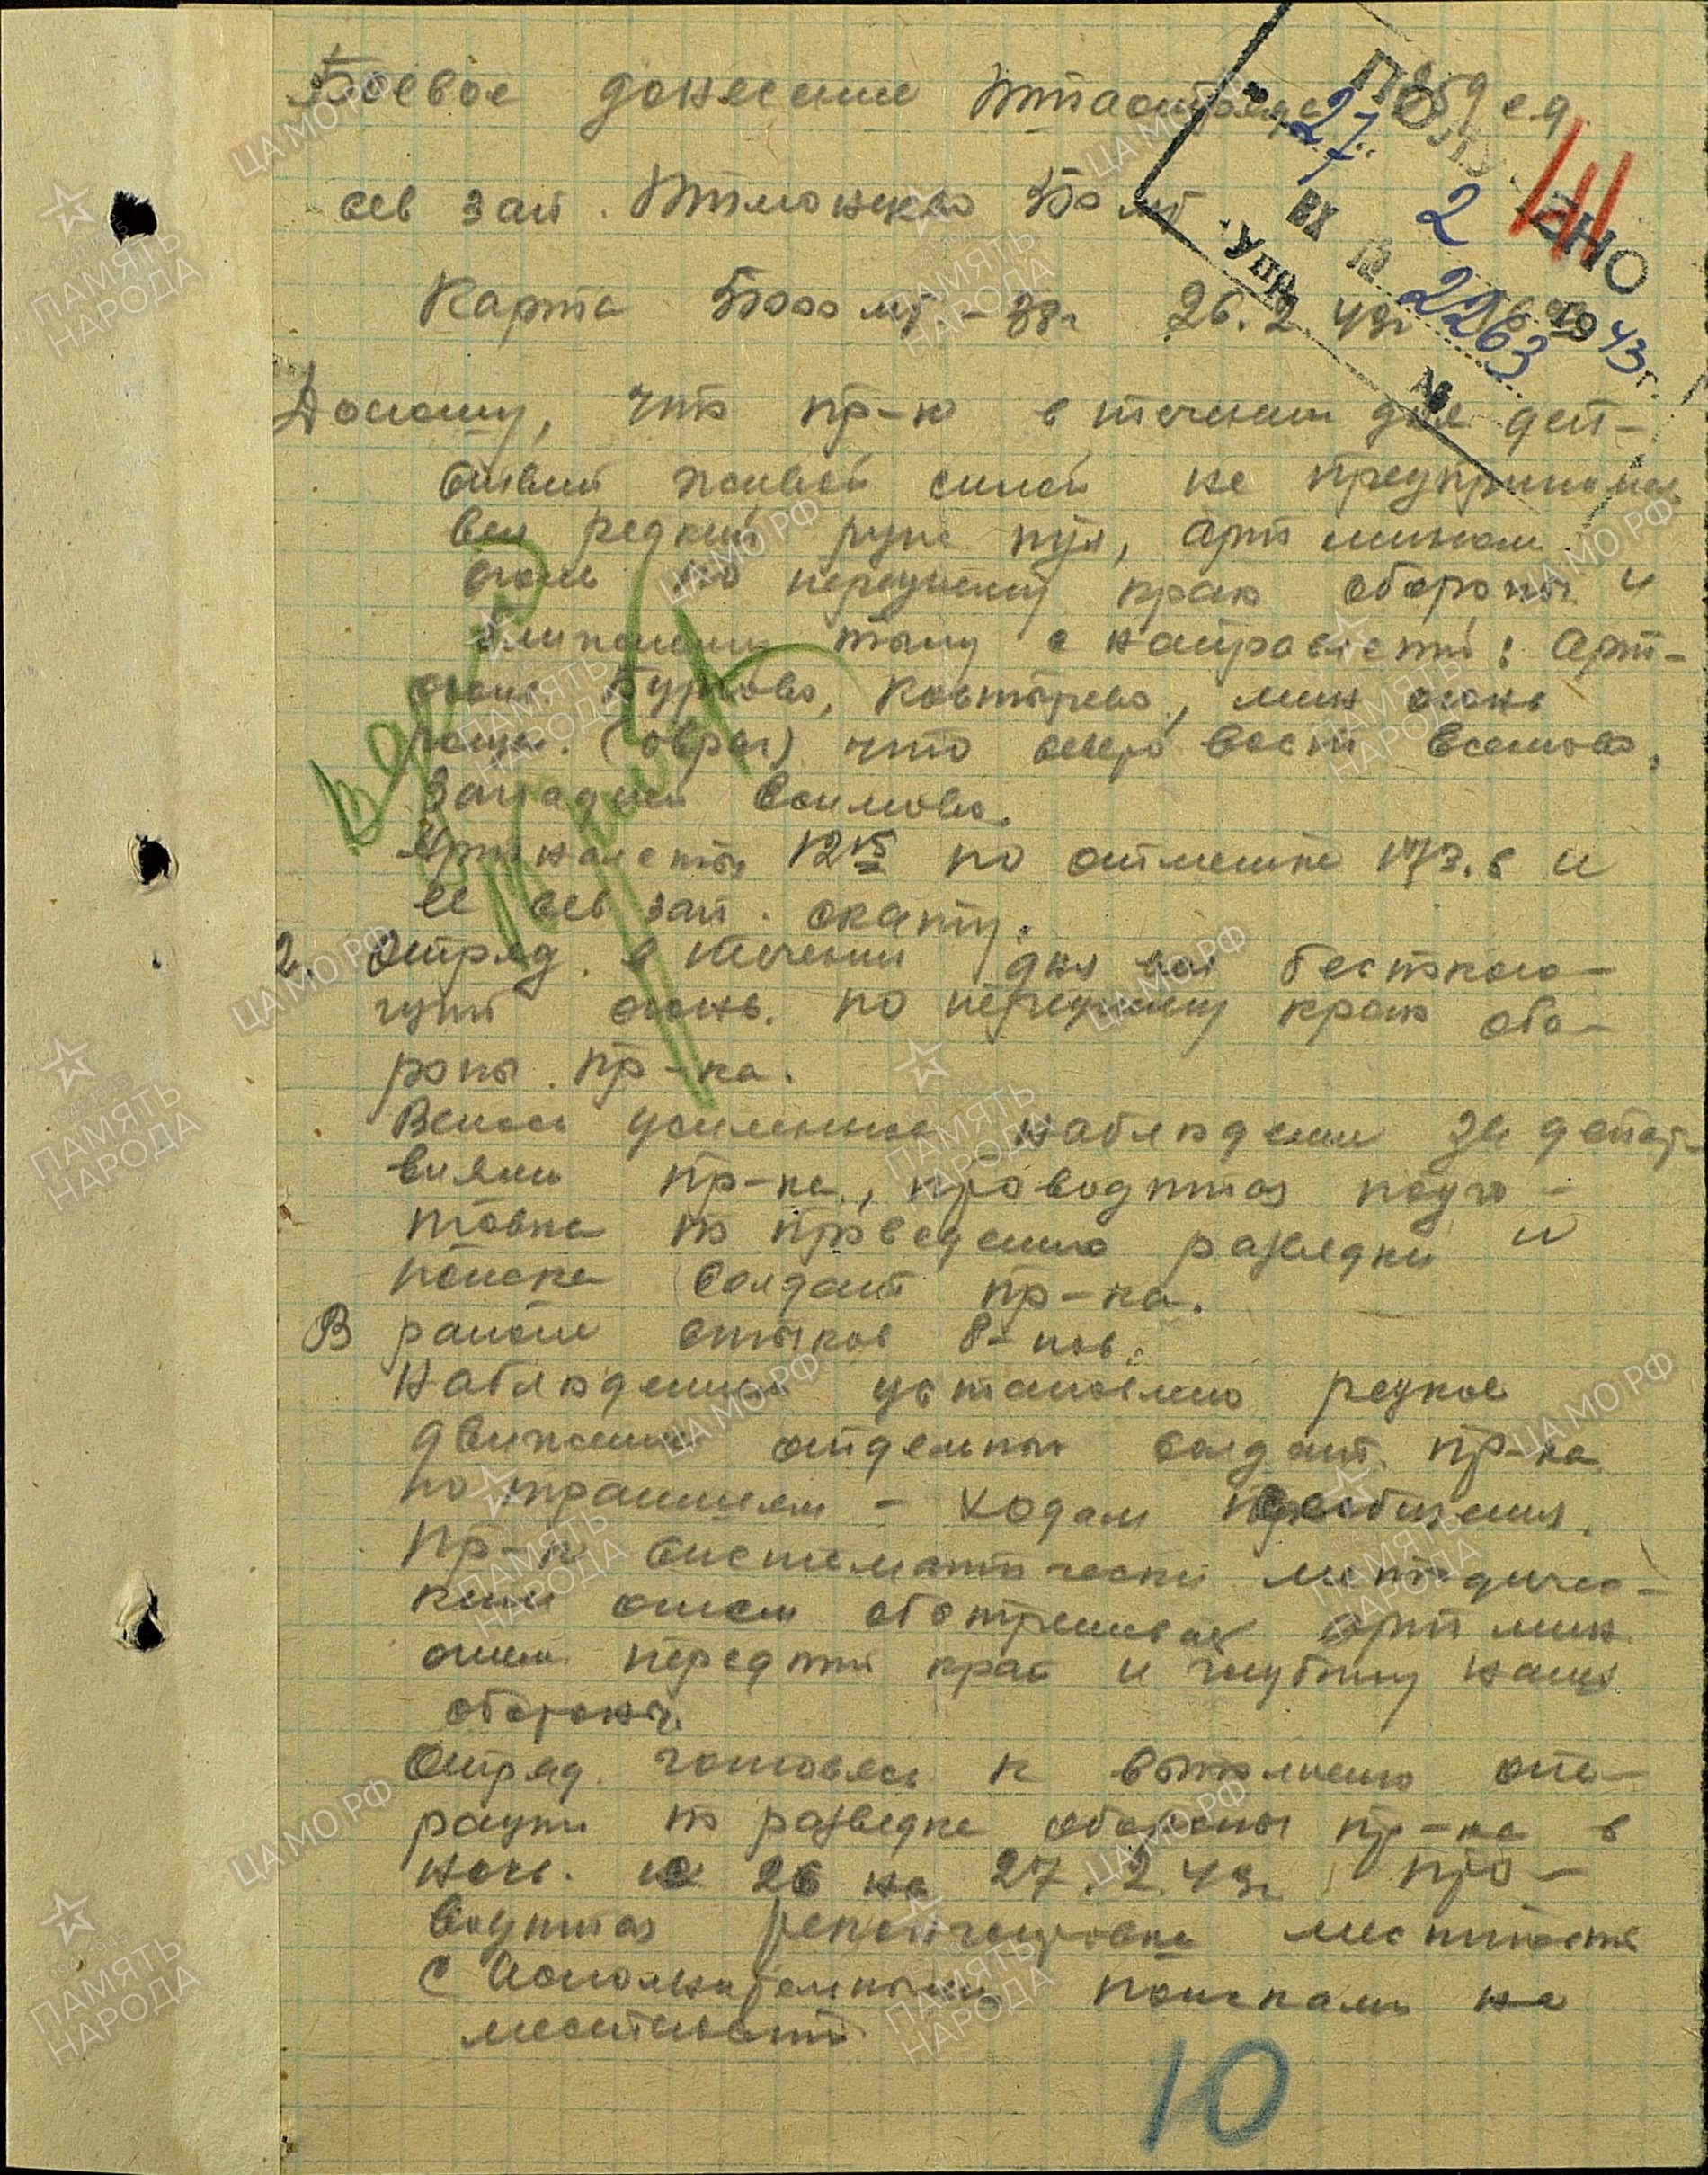 Боевое донесение 259 сд
сев зап. 500 мт
Карта 50000 мт - 38г 26.2 43г
ПОЛУЧЕНО
"27" 2 1943 г.
ВХ № 2263
Доношу, что пр-к в течении дня дей-
ствий живой силой не предпринимал
вел редкий руж пул, арт мином.
огонь по переднему краю обороны и
ближнему тылу с направлений: арт-
огонь Бурково, Костырево, мин огонь
роща (овраг) что северо вост
западней
Артналеты 12 15 по отметке 173.6 и
ее сев зап. скату.
2. Отряд в течении дня вел беспокою-
щий огонь по переднему краю обо-
роны пр-ка.
Велось усиленное наблюдение за дейст-
виями пр-ка, проводится подго-
товка по проведению разведки и
поиска солдат пр-ка.
В районе стыков 8-
наблюдением установлено редкое
движение отдельных солдат пр-ка
по траншеям - ходам сообщения.
Пр-к систематически методичес-
ким огнем обстреливал арт мин
огнем передний край и глубину нашей
обороны.
Отряд готовясь к выполнению опе-
рации по разведке обороны пр-ка в
ночь с 26 на 27.2.43г про-
водится рекогносцировка местности
с поисками на
местности
10
ЦА МО РФ
ПАМЯТЬ НАРОДА